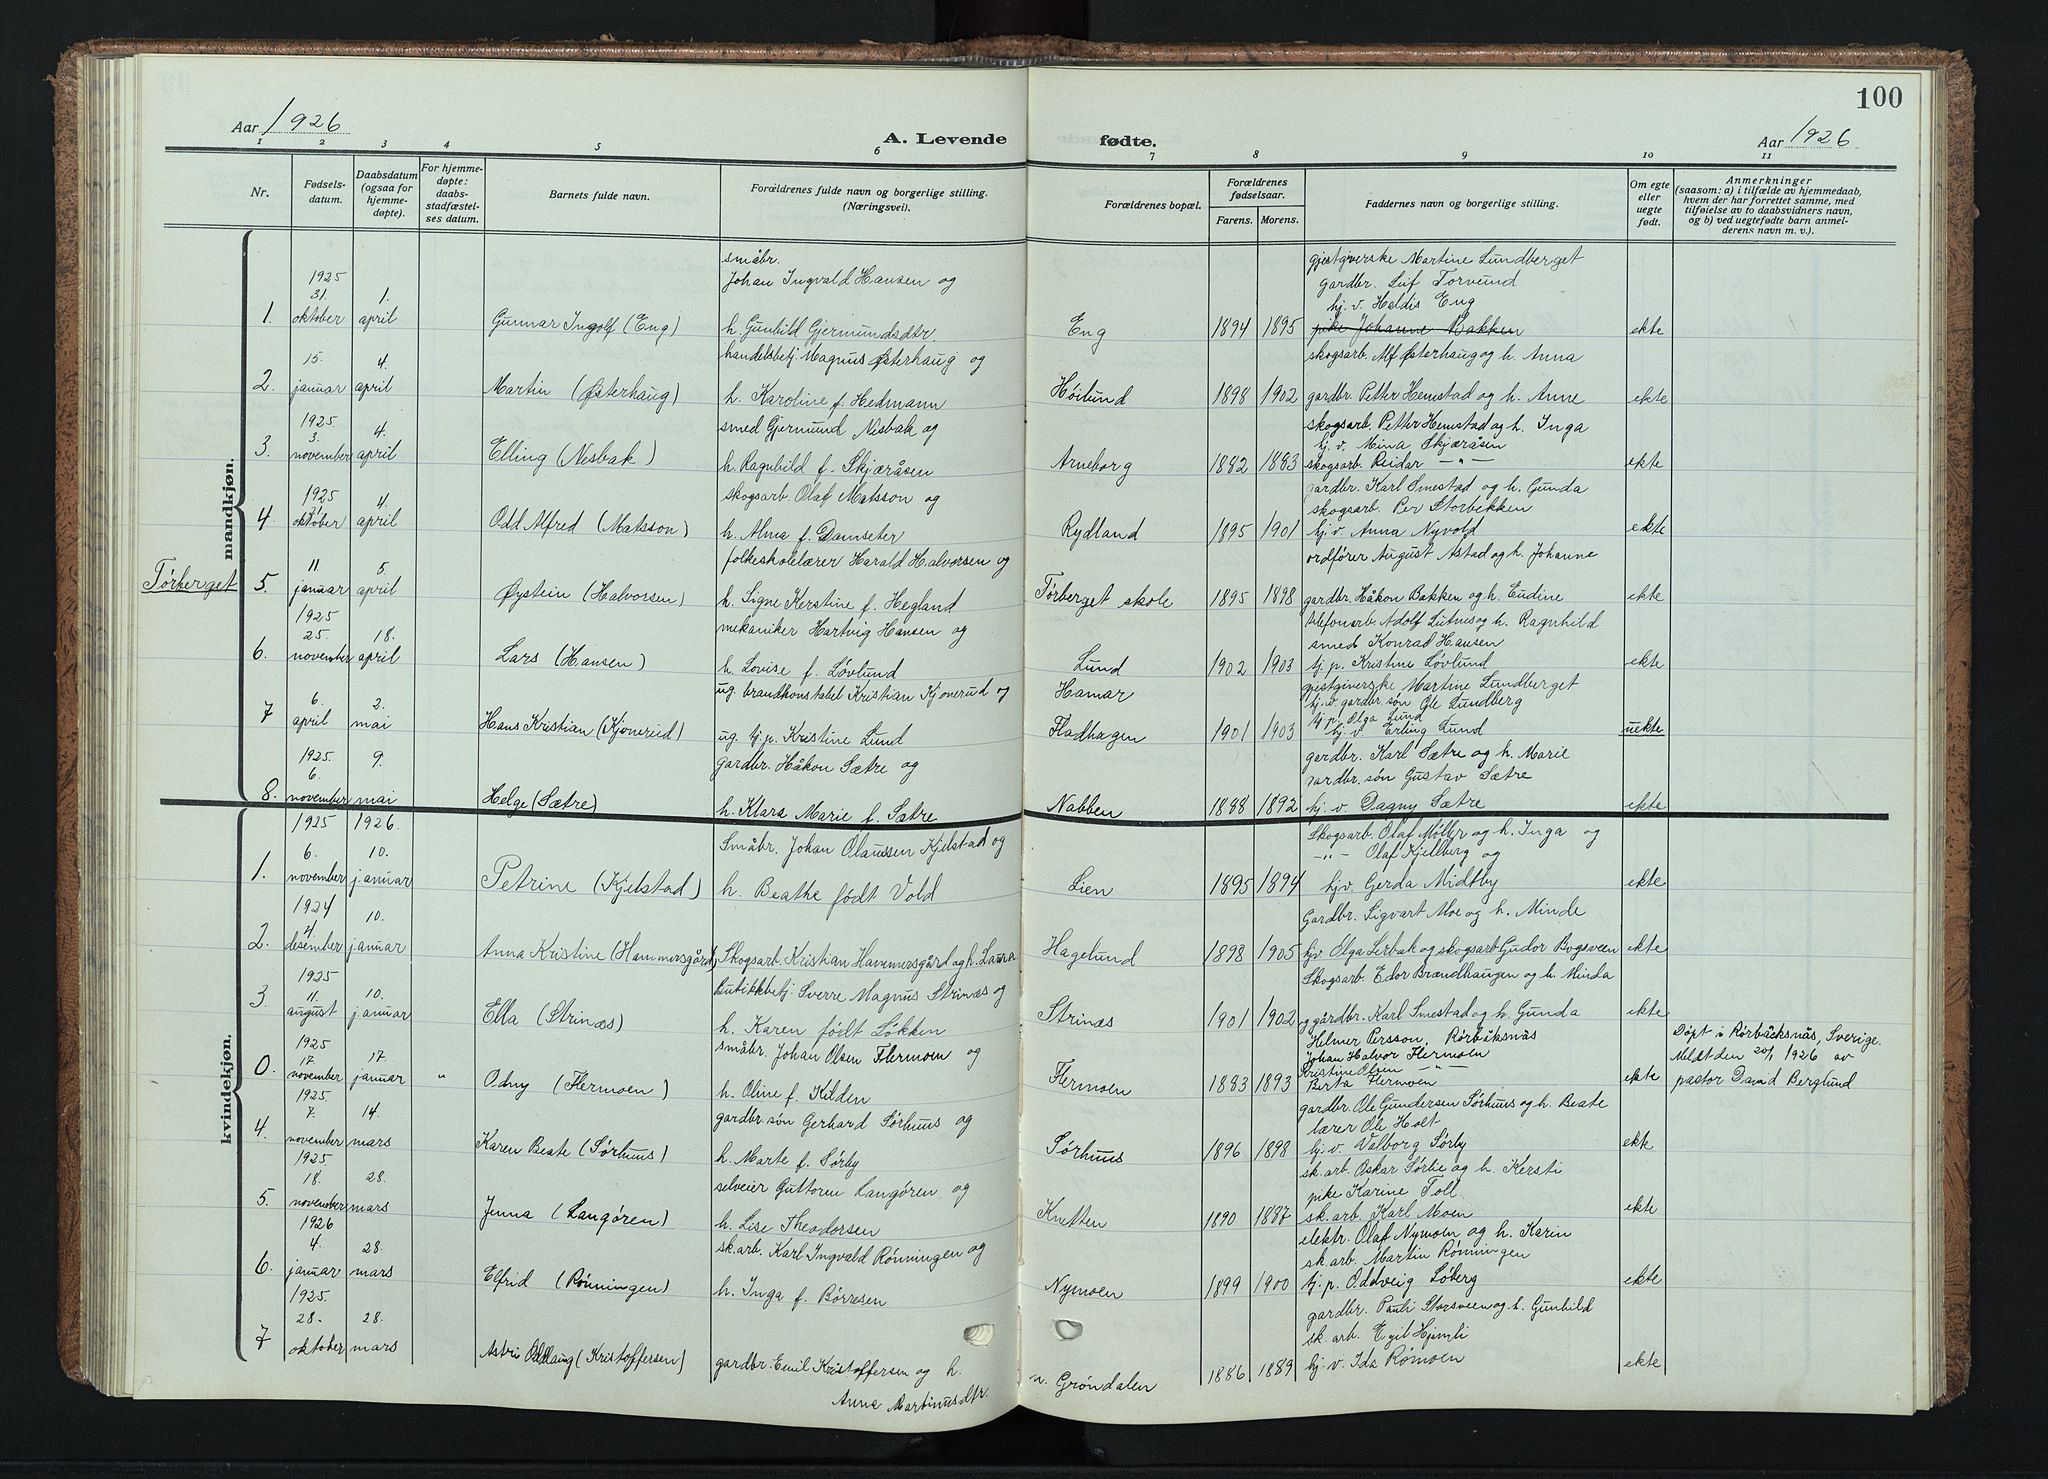 100
Aar 1926
A. Levende fødte.
Aar 1926
1 2 3 4 5 6 7 8 9 10 11
Nr.
Fødsels-
datum.
Daabsdatum
(ogsaa for
hjemme-
døpte).
For hjemme-
døpte:
daabs-
stadfæstel-
ses datum.
Barnets fulde navn.
Forældrenes fulde navn og borgerlige stilling.
(Næringsvei).
Forældrenes bopæl.
Forældrenes
fødselsaar.
Farens. Morens.
Faddernes navn og borgerlige stilling.
Om egte
eller
uegte
født.
Anmerkninger
(saasom: a) i tilfælde av hjemmedaab,
hvem der har forrettet samme, med
tilføielse av to daabsvidners navn,
og b) ved uegtefødte barn anmel-
derens navn m. v.).
mandkjøn.
Tørberget
småbr. gjestgiverske Martine Lundberget
1925 Johan Ingvald Hansen og gardbr. Leif Torvund
31. 1. hj. v. Heldis Eng
1. oktober april Gunnar Ingolf (Eng) h. Gunhild Gjermundsdtr. Eng 1894 1895 pike Johanne Bakken ekte
15. 4. handelsbetj. Magnus Østerhaug og skogsarb. Alf Østerhaug og h. Anna
2. januar april Martin (Østerhaug) h. Karoline f. Hedmann Høilund 1898 1902 gardbr. Petter Hemstad og h. Anne ekte
1925 smed Gjermund Nisbak og skogsarb. Petter Hemstad og h. Inga
3. 4. hj. v. Mina Skjæråsen
3. november april Elling (Nesbak) h. Ragnhild f. Skjæråsen Arneborg 1882 1883 skogsarb. Reidar —"— ekte
1925 4. skogsarb. Olaf Matsson og gardbr. Karl Smestad og h. Gunda
skogsarb. Per Storbekken
4. oktober april Odd Alfred (Matsson) h. Alma f. Damseter Rydland 1895 1901 hj. v. Anna Nyvold ekte
11. 5. folkeskolelærer Harald Halvorsen og ordfører August Astad og h. Johanne
5. januar april Øystein (Halvorsen) h. Signe Kerstine f. Hegland Tørberget skole 1895 1898 gardbr. Håkon Bakken og h. Eudine ekte
1925 mekaniker Hartvig Hansen og telefonarb. Adolf Lutnes og h. Ragnhild
25. 18. smed Konrad Hansen
6. november april Lars (Hansen) h. Lovise f. Løvlund Lund 1902 1903 tj. p. Kristine Løvlund ekte
6. 2. ug. brandkonstabel Kristian Kjonerud og Hamar gjestgiverske Martine Lundberget
hj. v. gardbr. søn Ole Lundberg
tj. p. Olga Lund
7 april mai Hans Kristian (Kjonerud) ug. tj. p. Kristine Lund Fladhagen 1901 1903 hj. v. Erling Lund uekte
1925 9. gardbr. Håkon Sætre og gardbr. Karl Sætre og h. Marie
6. gardbr. søn Gustav Sætre
8. november mai Helge (Sætre) h. Klara Marie f. Sætre Nabben 1888 1892 hj. v. Dagny Sætre ekte
kvindekjøn.
1925 1926. Småbr. Johan Olaussen Kjelstad og Skogsarb. Olaf Møller og h. Inga og
6. 10. —"— Olaf Kjellberg og
1. november januar Petrine (Kjelstad) h. Beathe født Vold Lien 1895 1894 hj.v. Gerda Midtby ekte
1924 10. Gardbr. Sigvart Moe og h. Minde
4.
2. desember januar Anna Kristine (Hammersgård) Skogsarb. Kristian Hammersgård og h. Laura Hagelund 1898 1905 hj.v. Olga Lerbak og skogsarb. Gudor Bogsveen ekte
1925 Butikkbetj. Sverre Magnus Strinæs og Skogsarb. Edor Brændhaugen og h. Minda
11. 10.
3. august januar Ella (Strinæs) h. Karen født Løkken Strinæs 1901 1902 og gårdbr. Karl Smestad og h. Gunda ekte
1925 småbr. Johan Olsen Flermoen og Helmer Persson, Rörbäcksnäs Døpt i Rörbäcksnäs, Sverige.
17. 17 Johan Halvor Flermoen Meldt den 20/1 1926 av
Kristine Olsen —"—
0. november januar " Odny (Flermoen) h. Oline f. Kilden Flermoen 1883 1893 Berta Flermoen ekte pastor David Berglund
1925. gardbr. søn Gerhard Sørhuus og gardbr. Ole Gundersen Sørhuus og h. Beate
7. 14. lærer Ole Holt
4. november mars Karen Beate (Sørhuus) h. Marte f. Sørby Sørhuus 1896 1898 hj. v. Valborg Sørby ekte
1925 selveier Guttorm Langören og sk. arb. Oskar Sørlie og h. Kersti
18. 28. pike Karine Toll.
5. november mars Jenna (Langören) h. Lise Theodorsen Knetten 1890 1887 sk. arb. Karl Moen ekte
1926 sk. arb. Karl Ingvald Rønningen og elektr. Olaf Nymoen og h. Karin
4. 28. sk. arb. Martin Rønningen
6. januar mars Elfrid (Rønningen) h. Inga f. Börresen Nymoen 1899 1900 tj. p. Oddveig Løberg ekte
1925. gardbr. Pauli Storsveen og h. Gunhild
28. 28. sk. arb. Egil Hjemli
7 oktober mars Astrid Oddlaug (Kristoffersen) gardbr. Emil Kristoffersen og h. n. Grøndalen 1886 1889 hj. v. Ida Rømoen ekte
Anna Martinusdtr.